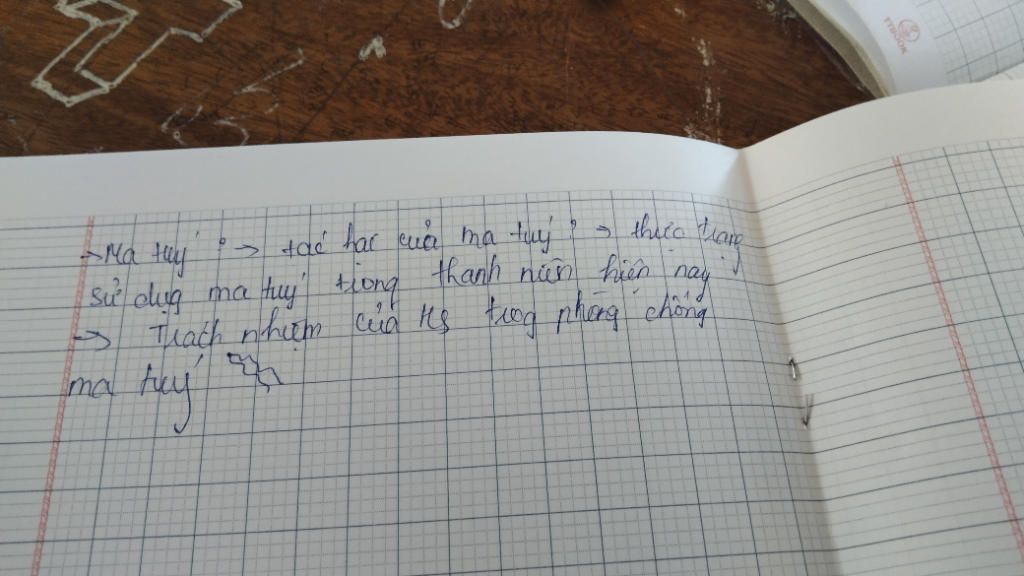 → Ma tuý ? → tác hại của ma tuý ? → thực trạng
sử dụg ma tuý trong thanh niên hiện nay
→ Trách nhiệm của Hs trog phòng chống
ma tuý